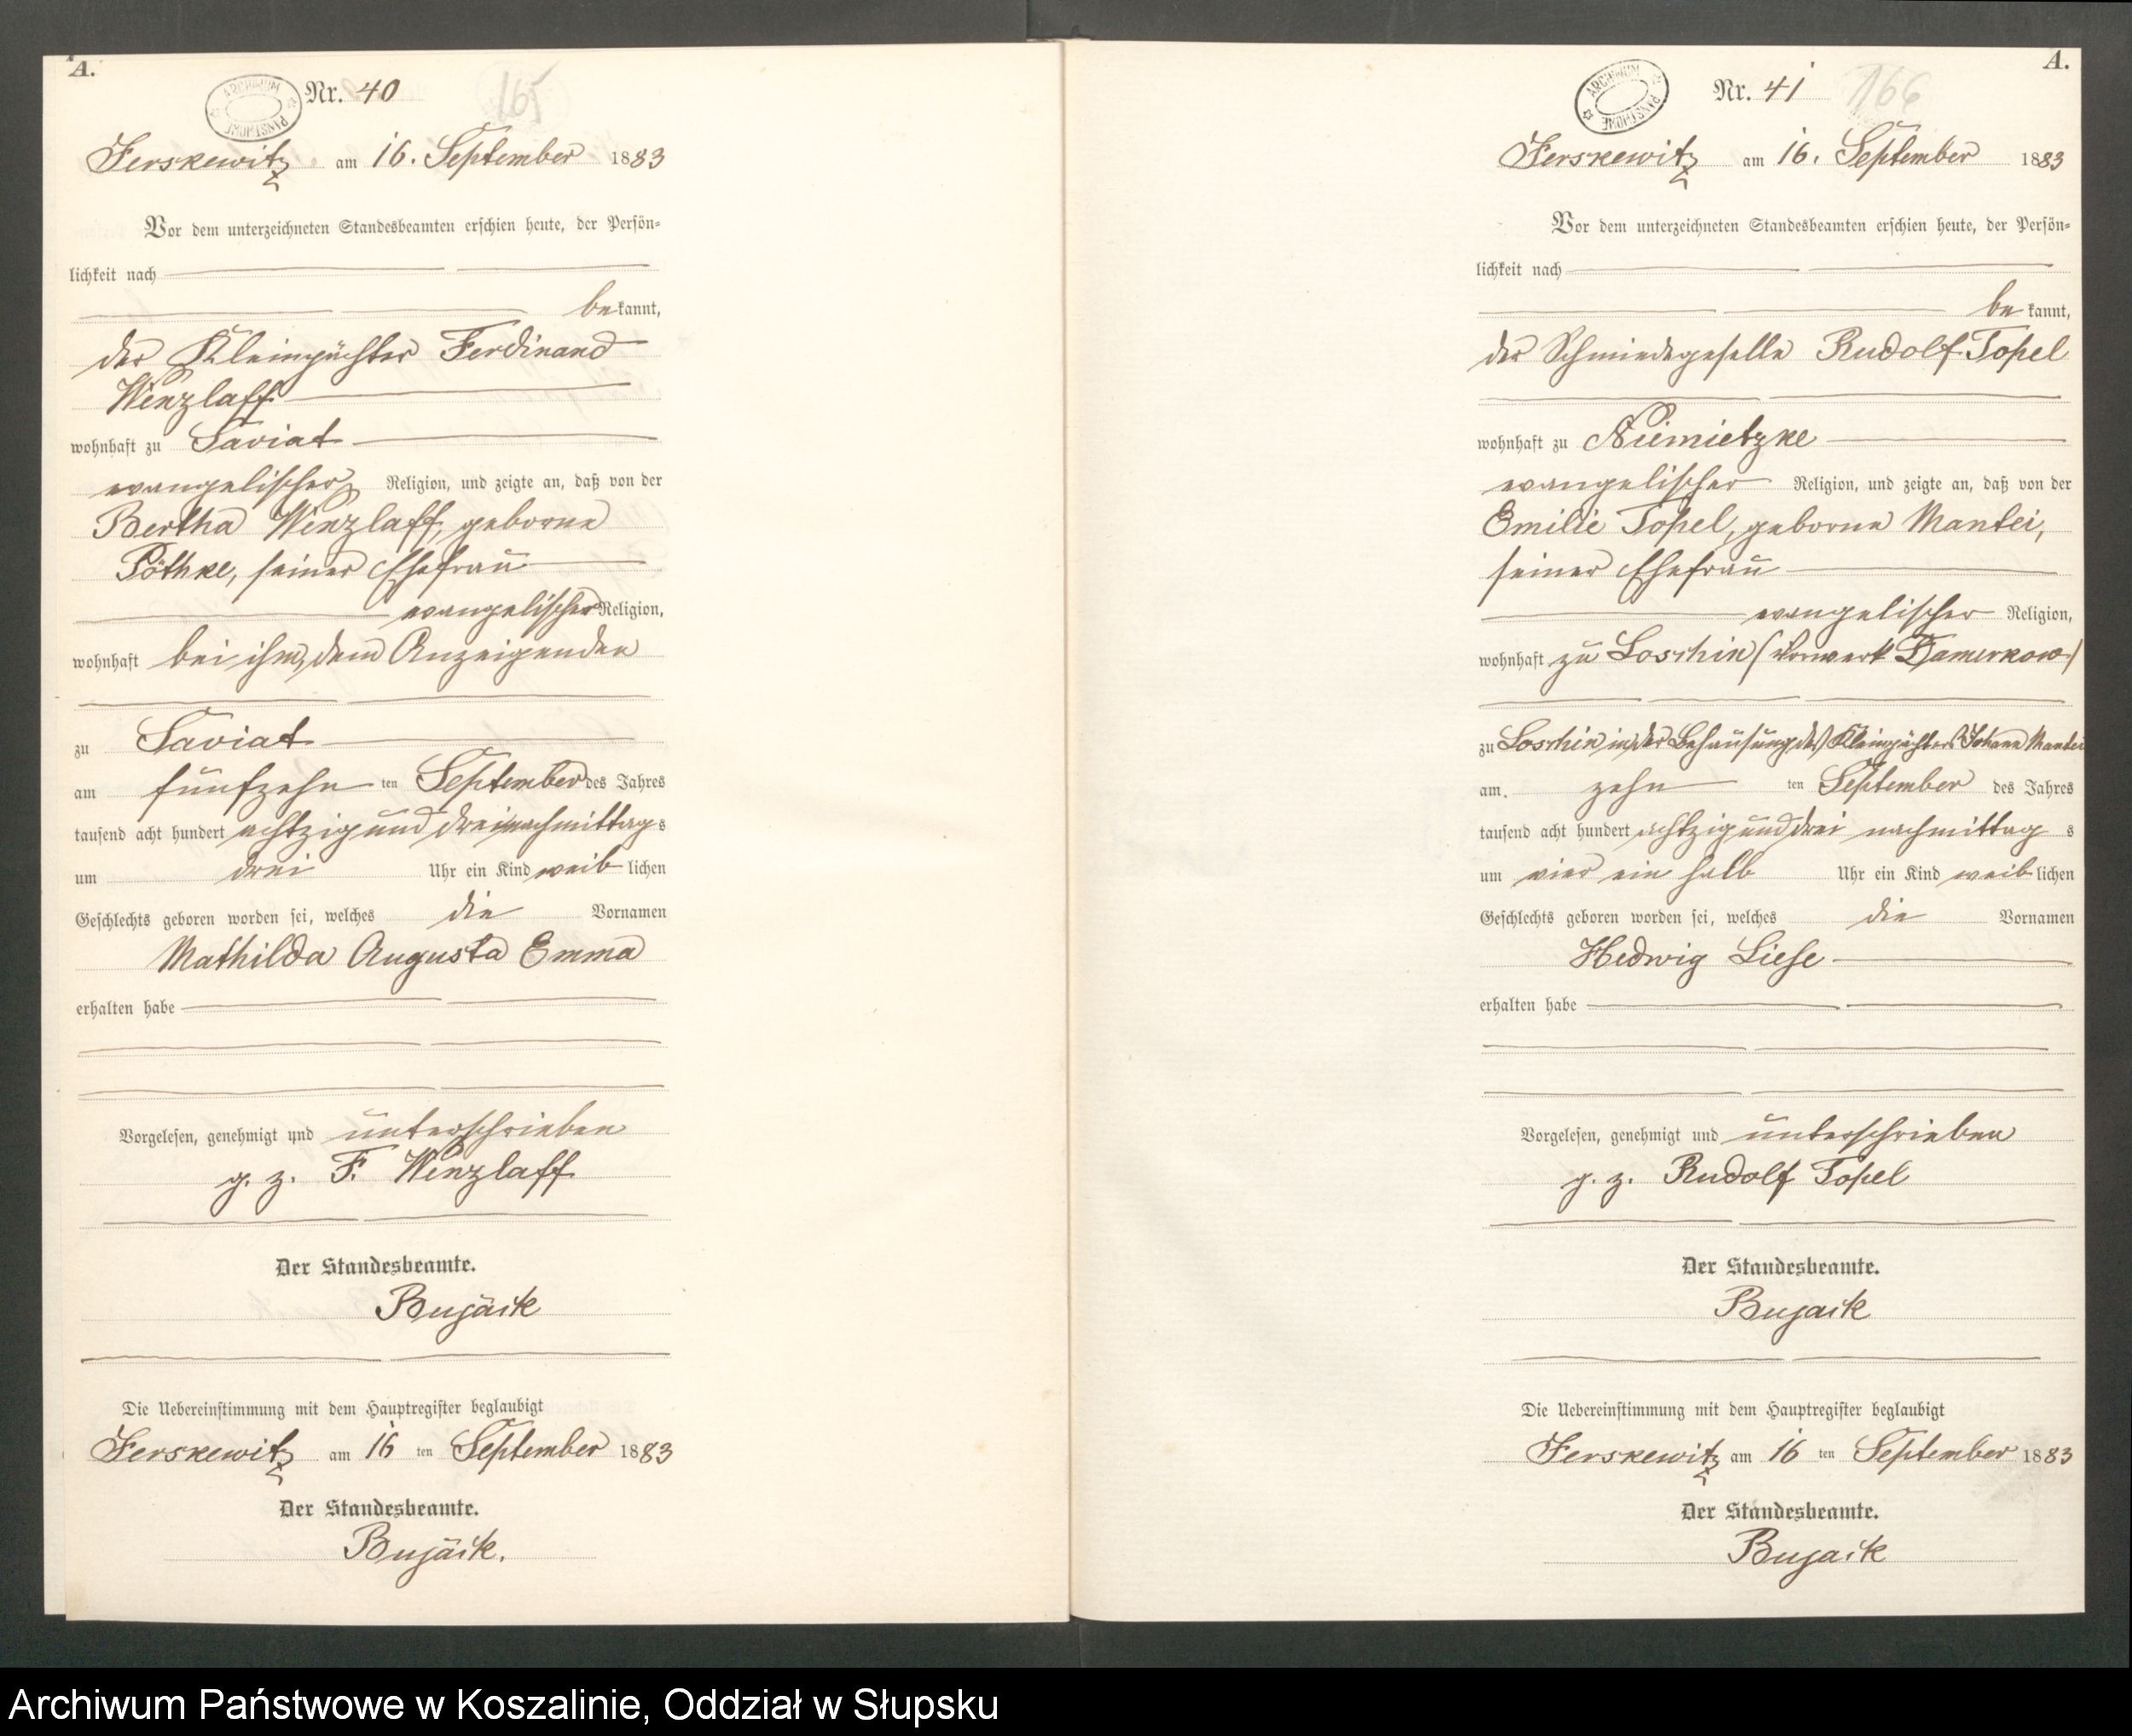 A.
ARCHIWUM PAŃSTWOWE
Nr. 40
165
Jerskewitz am 16. September 1883
Vor dem unterzeichneten Standesbeamten erschien heute, der Persön-
lichkeit nach
bekannt,
der Kleinpächter Ferdinand
Wenzlaff
wohnhaft zu Saviat
evangelischer Religion, und zeigte an, daß von der
Bertha Wenzlaff, geborne
Pöthke, seiner Ehefrau
evangelischer Religion,
wohnhaft bei ihm, dem Anzeigenden
zu Saviat
am fünfzehn ten September des Jahres
tausend acht hundert achtzig und drei nachmittags
um drei Uhr ein Kind weiblichen
Geschlechts geboren worden sei, welches die Vornamen
Mathilda Augusta Emma
erhalten habe
Vorgelesen, genehmigt und unterschrieben
g. z. F. Wenzlaff
Der Standesbeamte.
Bujäck
Die Uebereinstimmung mit dem Hauptregister beglaubigt
Jerskewitz am 16 ten September 1883
Der Standesbeamte.
Bujäck.
A.
ARCHIWUM PAŃSTWOWE
Nr. 41
166
Jerskewitz am 16. September 1883
Vor dem unterzeichneten Standesbeamten erschien heute, der Persön-
lichkeit nach
bekannt,
der Schmiedegeselle Rudolf Topel
wohnhaft zu Niemietzke
evangelischer Religion, und zeigte an, daß von der
Emilie Topel, geborne Mantei,
seiner Ehefrau
evangelischer Religion,
wohnhaft zu Loschin (Vorwerk Damerkow)
zu Loschin in der Behausung des Kleinpächters Johann Mantei
am zehn ten September des Jahres
tausend acht hundert achtzig und drei nachmittags
um vier ein halb Uhr ein Kind weiblichen
Geschlechts geboren worden sei, welches die Vornamen
Hedwig Liese
erhalten habe
Vorgelesen, genehmigt und unterschrieben
g. z. Rudolf Topel
Der Standesbeamte.
Bujack
Die Uebereinstimmung mit dem Hauptregister beglaubigt
Jerskewitz am 16 ten September 1883
Der Standesbeamte.
Bujack
Archiwum Państwowe w Koszalinie, Oddział w Słupsku